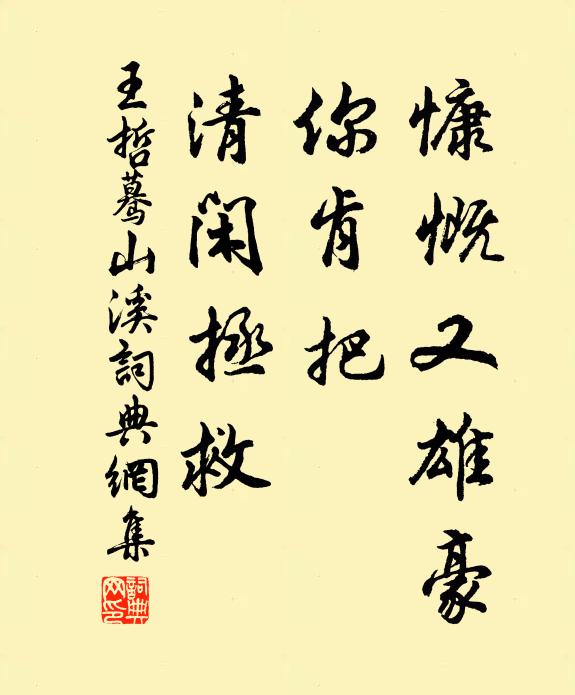 慷慨又雄豪
你肯把
清閑拯救
王哲驀山溪詞典網集
詞典
网印